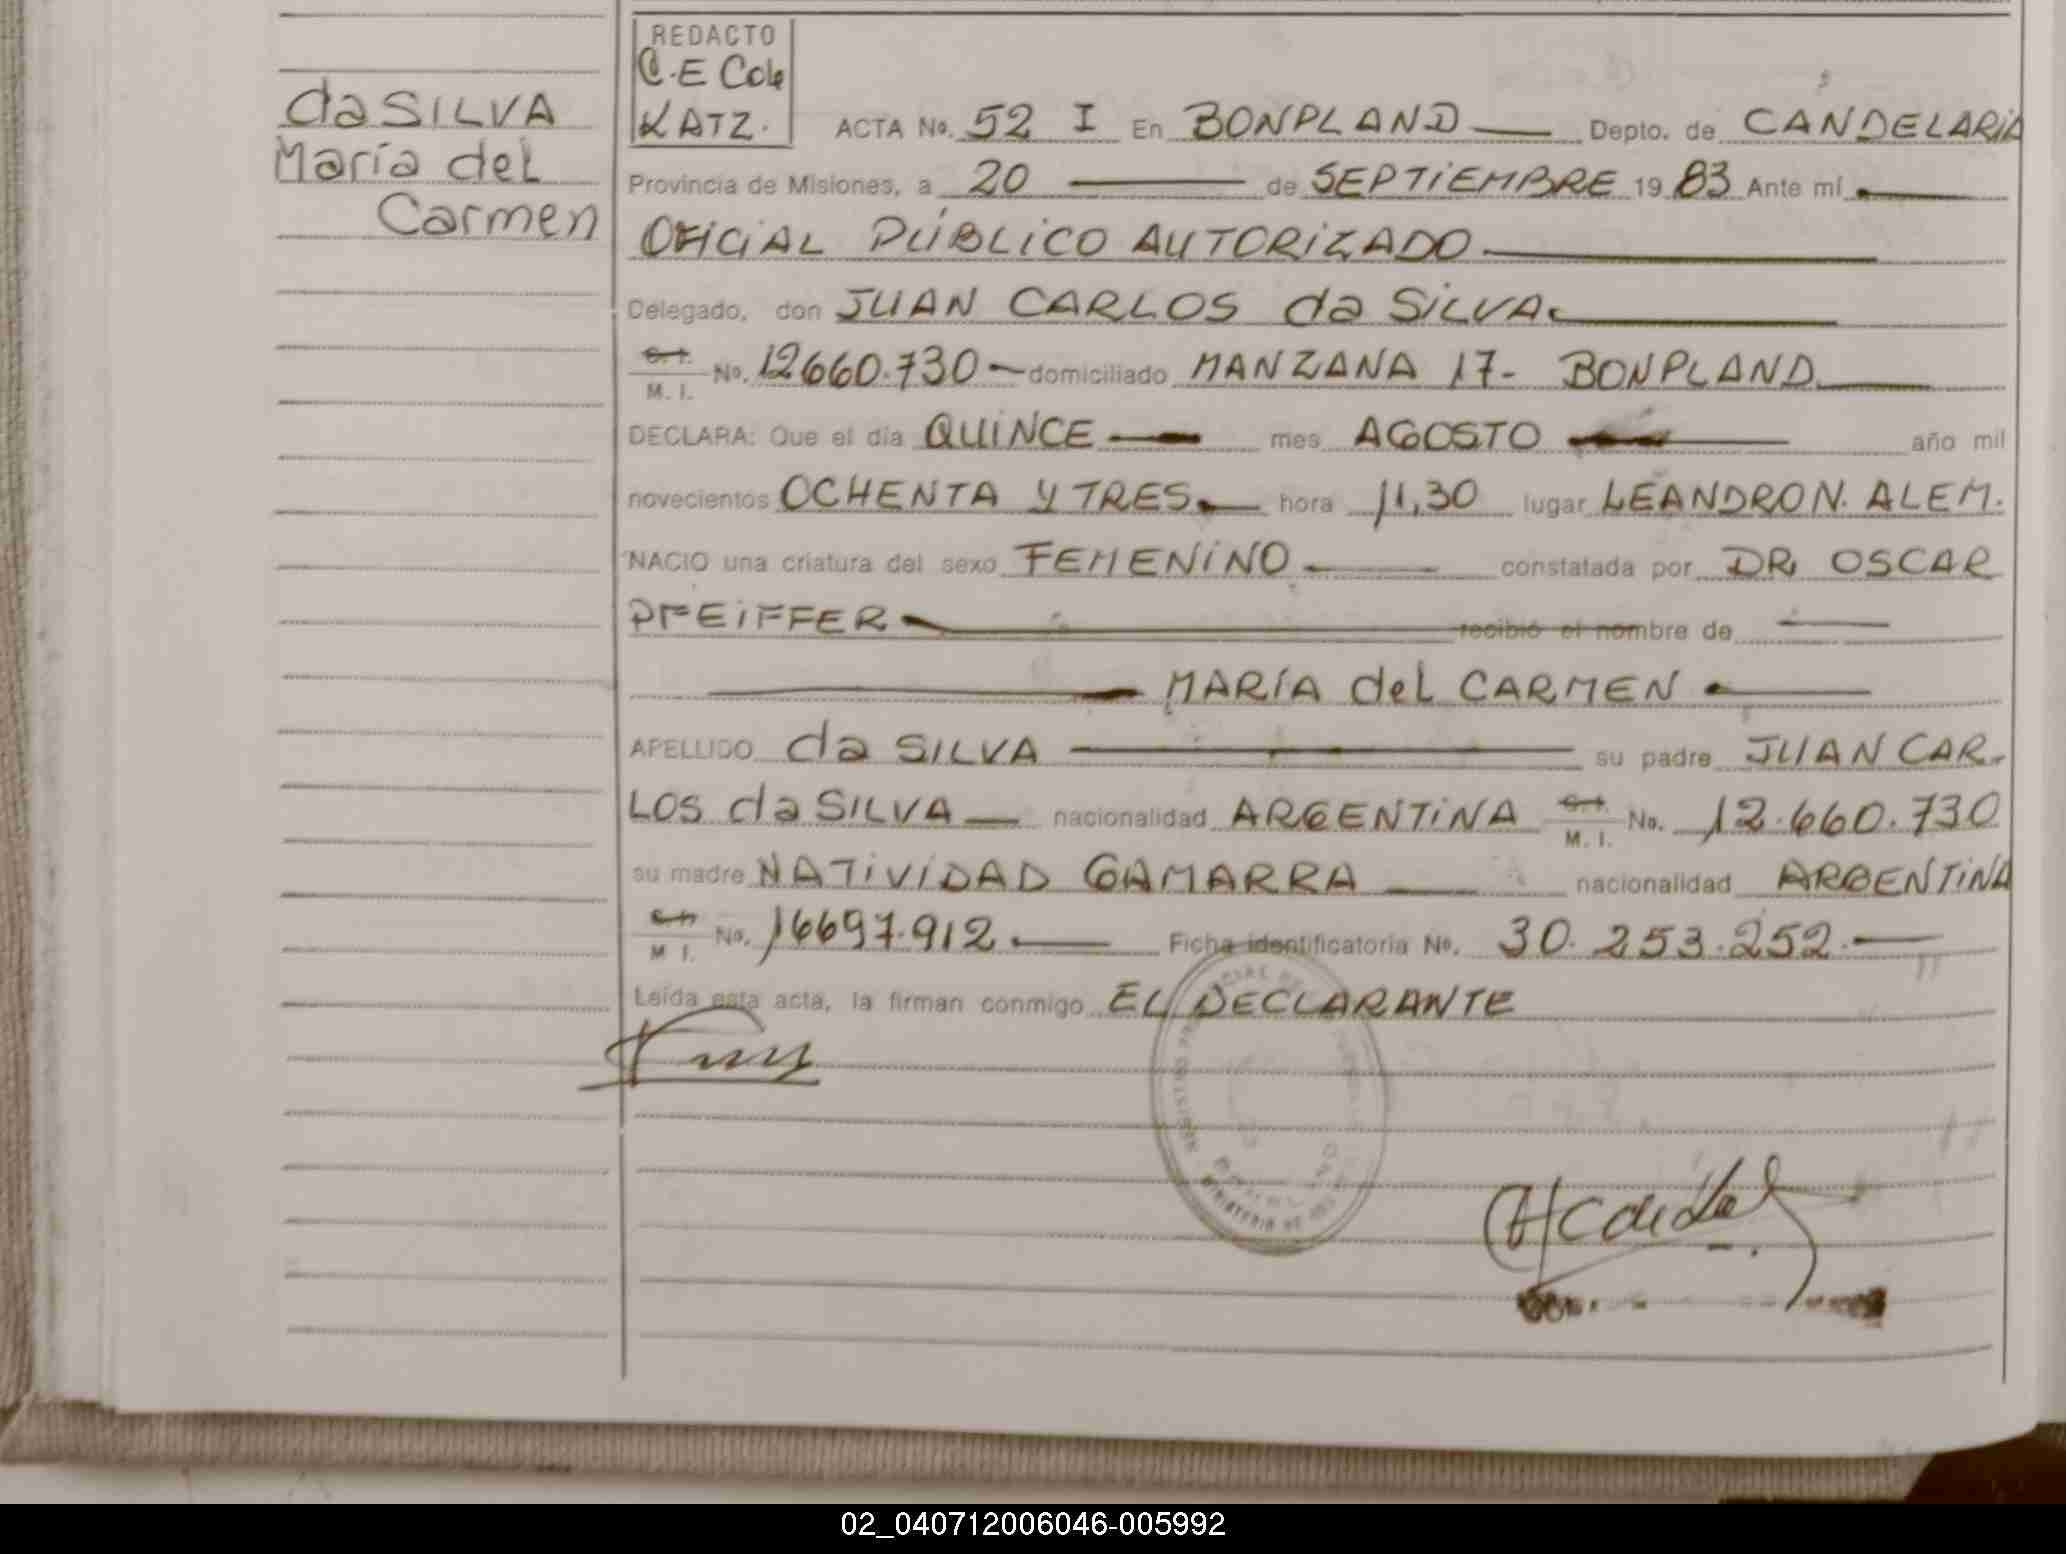 da SILVA
María del
Carmen
REDACTO
C.E Cole
KATZ.
ACTA No. 52 I En BONPLAND Depto. de CANDELARIA
Provincia de Misiones, a 20 de SEPTIEMBRE 19 83 Ante mí
OFICIAL PÚBLICO AUTORIZADO
Delegado, don JUAN CARLOS da SILVA
C.I.
M. I. No. 12660.730 domiciliado MANZANA 17- BONPLAND
DECLARA: Que el día QUINCE mes AGOSTO año mil
novecientos OCHENTA Y TRES hora 11,30 lugar LEANDRO N. ALEM.
NACIO una criatura del sexo FEMENINO constatada por DR. OSCAR
PFEIFFER recibió el nombre de
MARÍA del CARMEN
APELLIDO da SILVA su padre JUAN CAR-
LOS da SILVA nacionalidad ARGENTINA C.I. M. I. No. 12.660.730
su madre NATIVIDAD GAMARRA nacionalidad ARGENTINA
C.I.
M I. No. 16697.912 Ficha identificatoria No. 30.253.252.
Leída esta acta, la firman conmigo EL DECLARANTE
MINISTERIO DE
02_040712006046-005992